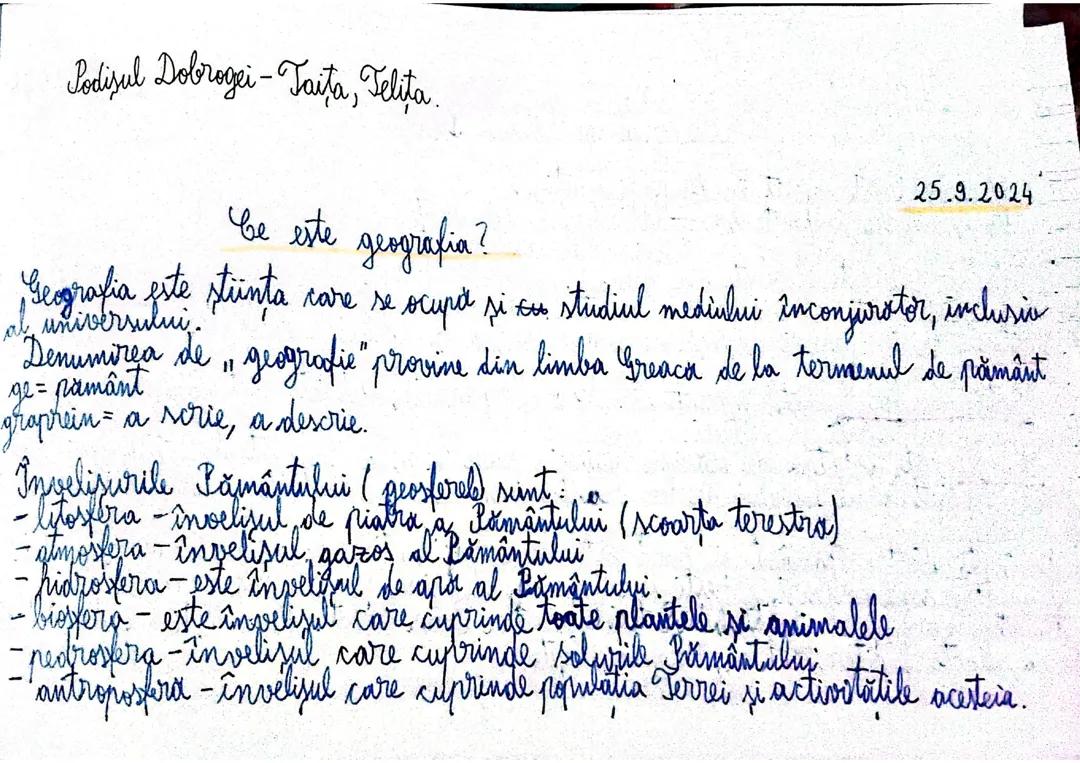 Podișul Dobrogei - Taița, Telița.
25.9.2024
Ce este geografia?
Geografia este știința care se ocupă și cu studiul mediului înconjurător, inclusiv
al universului.
Denumirea de „geografie" provine din limba Greacă de la termenul de pământ
ge = pământ
graphein = a scrie, a descrie.
Învelișurile Pământului (geosferele) sunt:
- litosfera - învelișul de piatră a Pământului (scoarța terestră)
- atmosfera - învelișul gazos al Pământului
- hidrosfera - este învelișul de apă al Pământului.
- biosfera - este învelișul care cuprinde toate plantele și animalele
- pedrosfera - învelișul care cuprinde solurile Pământului
- antroposfera - învelișul care cuprinde populația Terrei și activitățile acesteia.